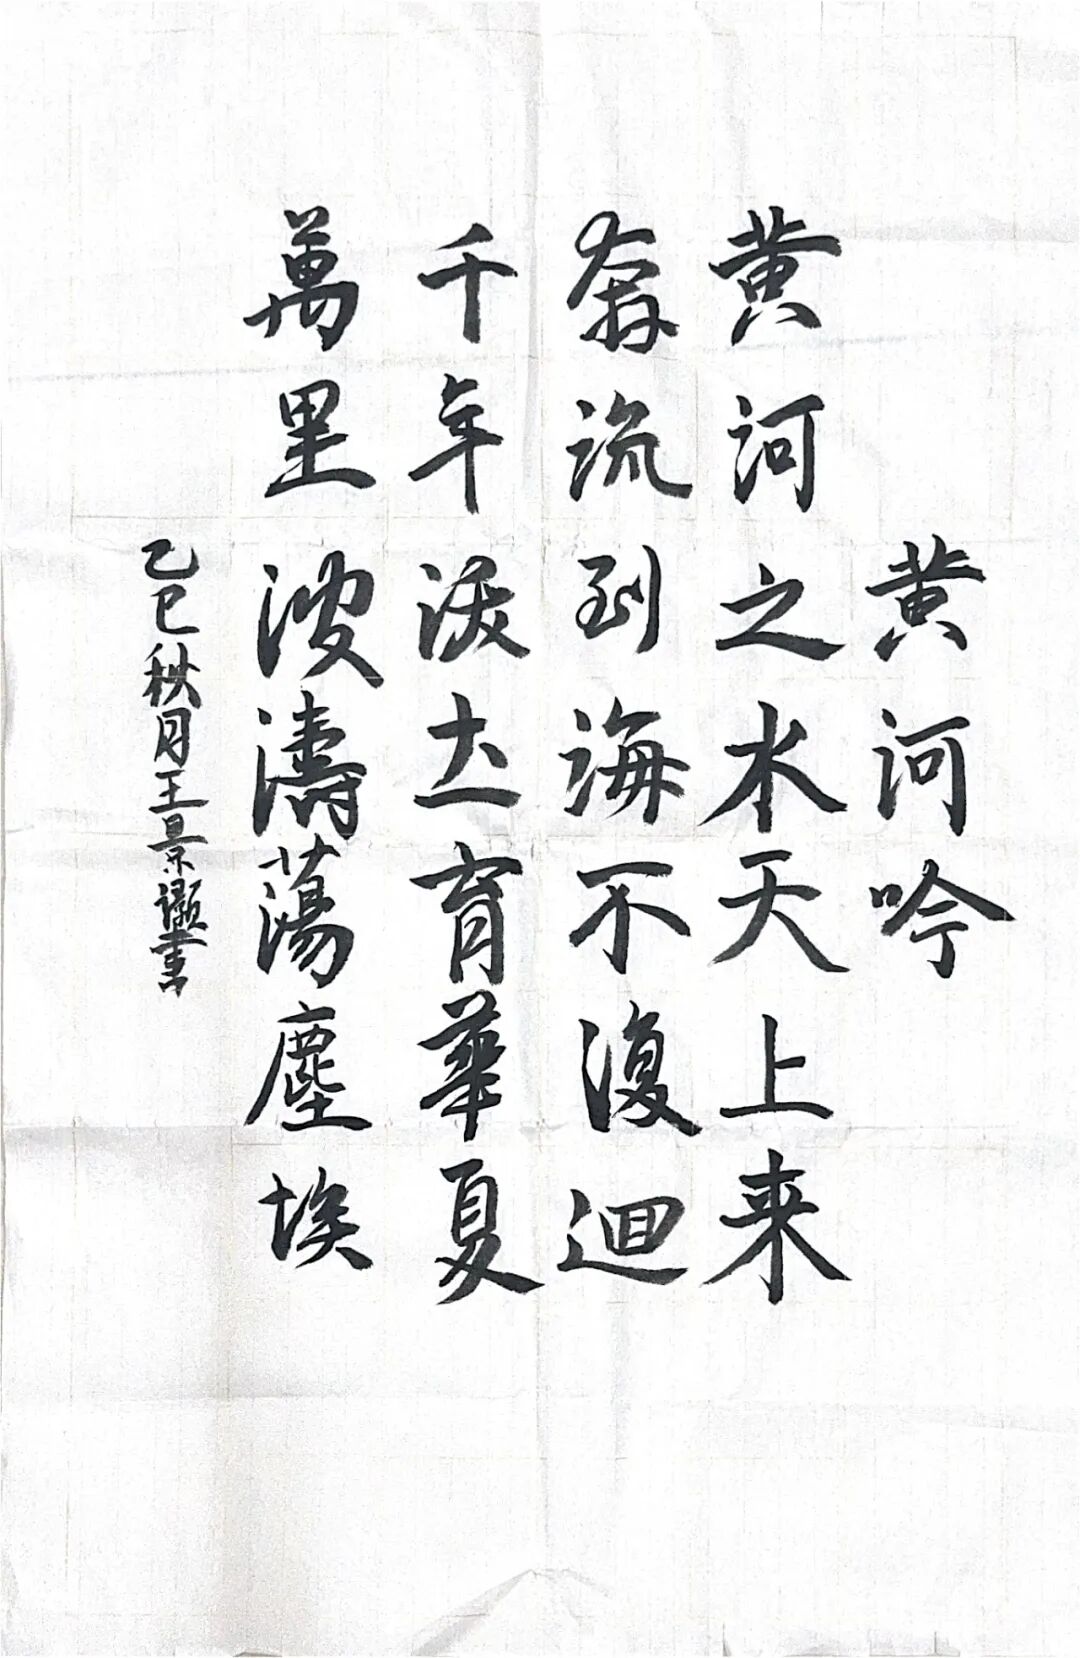 黄河吟
黄河之水天上来
奔流到海不復迴
千年沃土育華夏
萬里波濤蕩塵埃
乙巳秋月王景灝書